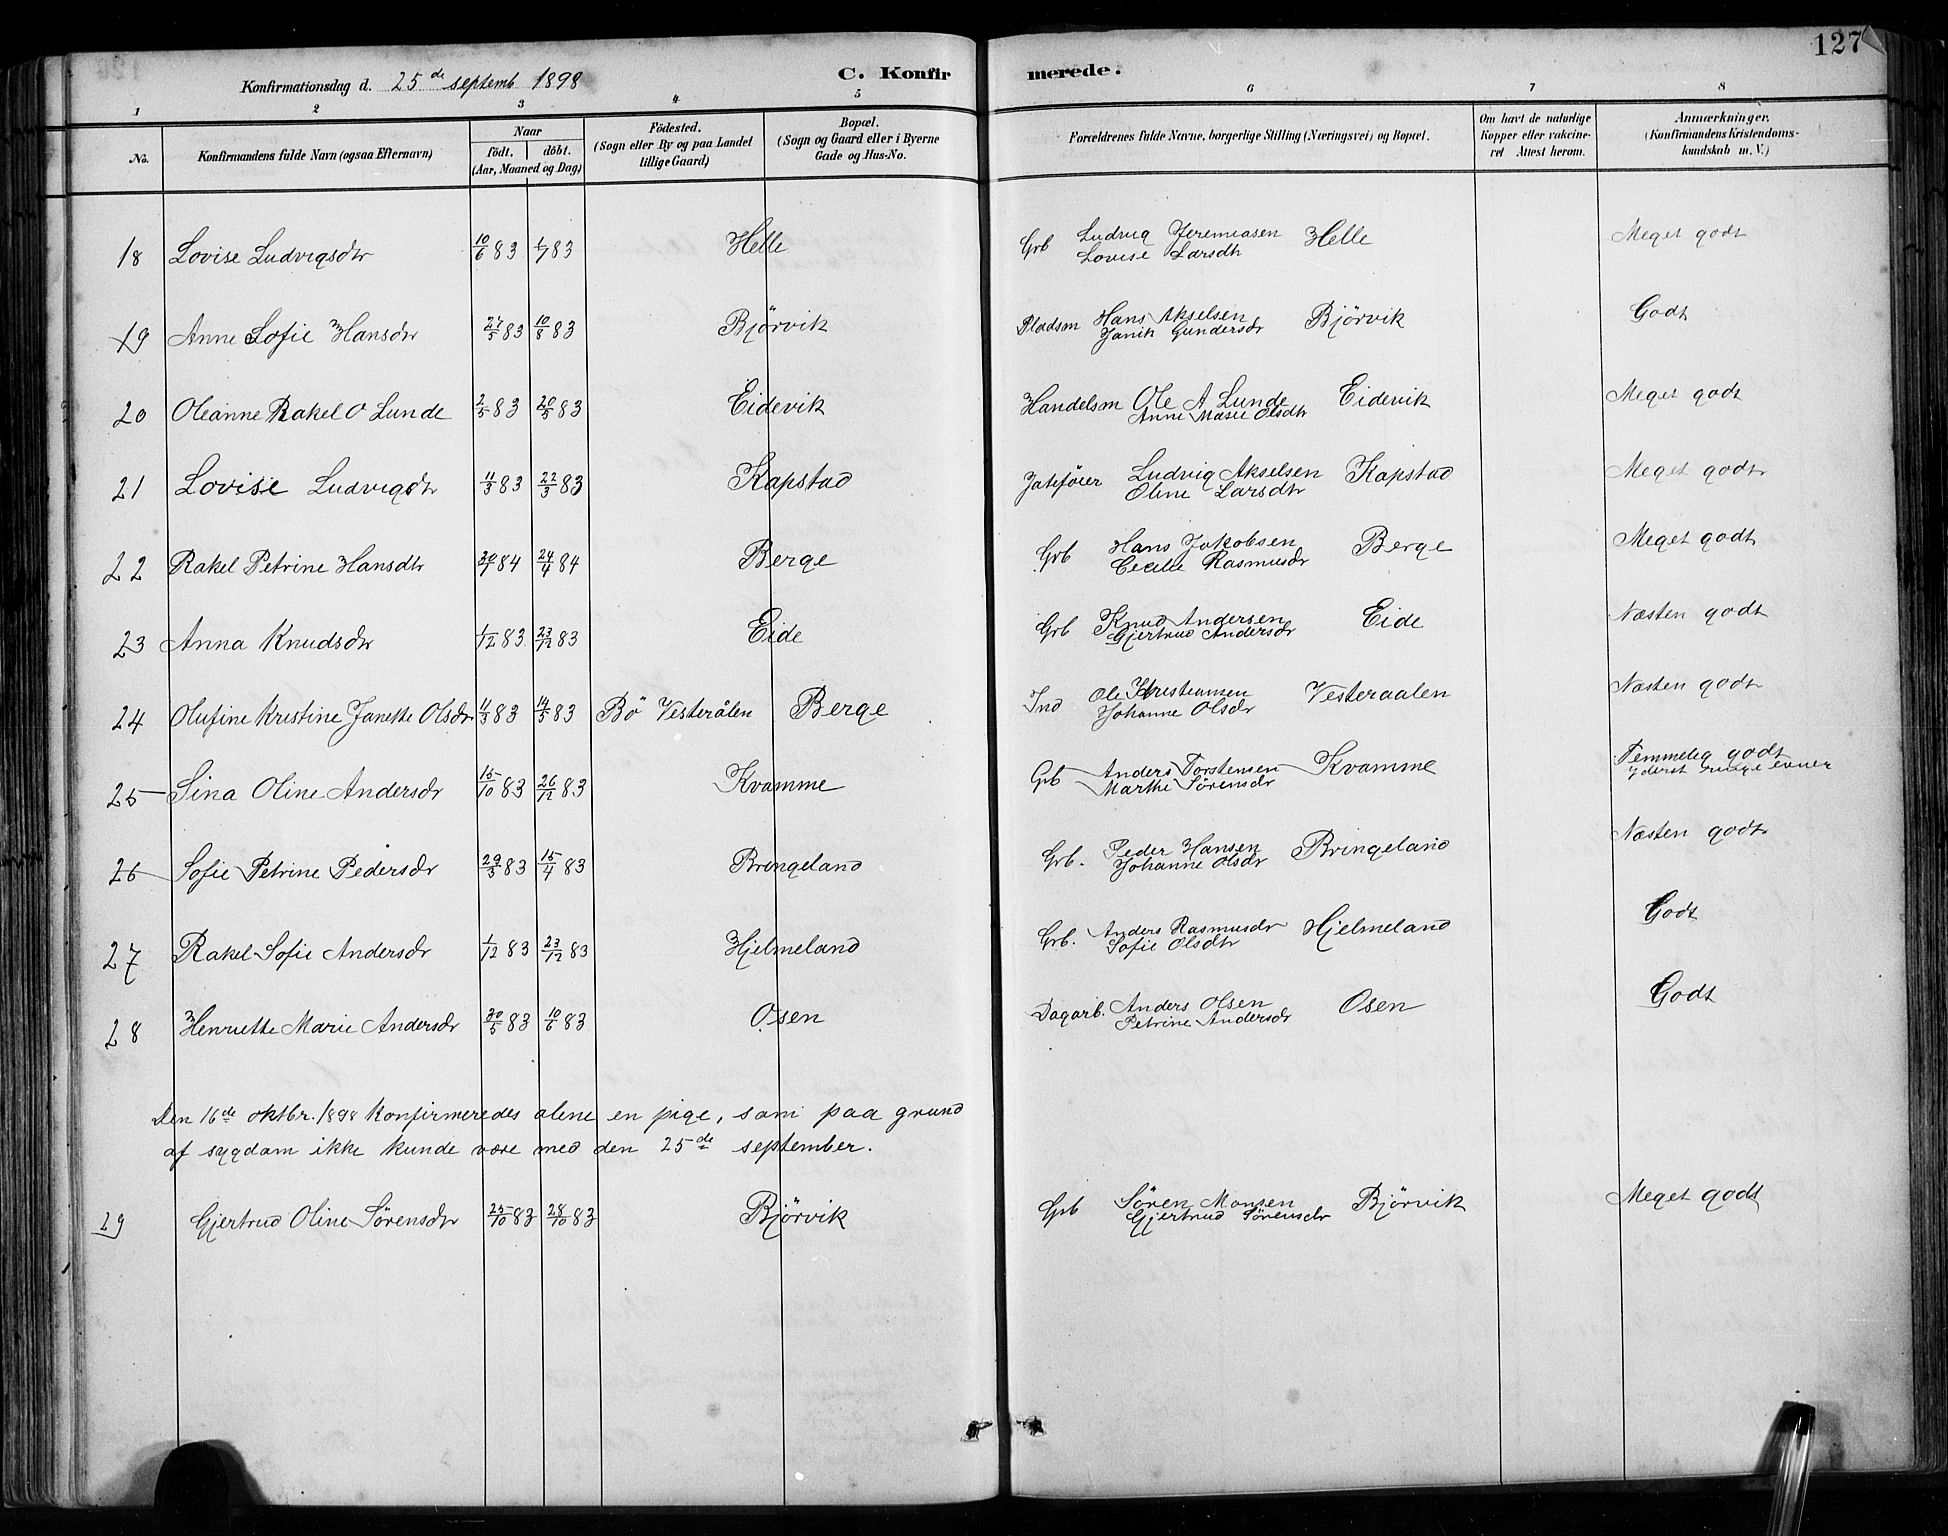 127
Konfirmationsdag d. 25de septemb 1898 C. Konfirmerede.
1 2 3 4 5 6 7 8
No. Konfirmandens fulde Navn (ogsaa Efternavn) Naar födt. döbt. (Aar, Maaned og Dag) Födested. (Sogn eller By og paa Landet tillige Gaard) Bopæl. (Sogn og Gaard eller i Byerne Gade og Hus-No. Forældrenes fulde Navne, borgerlige Stilling (Næringsvei) og Bopæl. Om havt de naturlige Kopper eller vaccineret Attest herom. Anmærkninger. (Konfirmandens Kristendomskundskab m. V.)
18 Lovise Ludvigsdtr 10/6 83 1/7 83 Helle Grb Ludvig Jeremiasen Lovise Larsdtr Helle Meget godt
19 Anne Sofie Hansdtr 27/5 83 10/8 83 Björvik Pladsm Hans Akselsen Janik Gundersdr Björvik Godt
20 Oleanne Rakel O Lunde 2/5 83 20/5 83 Eidevik Handelsm Ole A Lunde Anne Marie Olsdtr Eidevik Meget godt
21 Lovise Ludvigsdtr 11/3 83 22/3 83 Kapstad Ludvig Akselsen Oline Larsdtr Kapstad Meget godt
22 Rakel Petrine Hansdtr 84 24/4 84 Berge Grb Hans Jakobsen Cecilie Rasmusdr Berge Meget godt
23 Anna Knudsdtr 1/12 83 23/12 83 Eide Grb Knud Andersen Gjertrud Andersdr Eide Næsten godt
24 Olufine Kristine Janette Olsdr 11/3 83 14/5 83 Bö Vesterålen Berge Ind Ole Kristiansen Johanne Olsdr Vesteraalen Næsten godt
25 Sina Oline Andersdr 15/10 83 26/12 83 Kvamme Grb Anders Torstensen Marthe Sörensdr Kvamme Temmelig godt yderst ringe evner
26 Sofie Petrine Pedersdr 29/3 83 15/4 83 Bringeland Grb. Peder Hansen Johanne Olsdr Bringeland Næsten godt
27 Rakel Sofie Andersdr 1/12 83 23/12 83 Hjelmeland Grb. Anders Rasmusdr Sofie Olsdtr Hjelmeland Godt
28 Henriette Marie Andersdr 30/5 83 10/6 83 Osen Dagarb. Anders Olsen Petrine Andersdr Osen Godt
Den 16de oktbr. 1898 Konfirmeredes alene en pige, som paa grund
af sygdom ikke kunde være med den 25de september.
29 Gjertrud Oline Sörensdtr 25/10 83 28/10 83 Björvik Grb Sören Monsen Gjertrud Sörensdr Björvik Meget godt